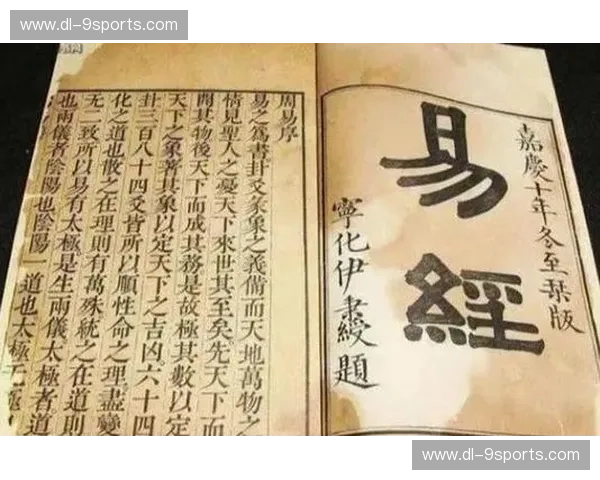 www.dl-9sports.com
嘉慶十年冬至栞版
易經
寧化伊秉綬題
周易序
易之爲書卦爻彖象之義備而天地萬物之
情見聖人之憂天下來世其至矣先天下而
開其物後天下而成其務是故極其數以定
天下之象著其象以定天下之吉凶六十四
卦三百八十四爻皆所以順性命之理盡變
化之道也散之在理則有萬殊統之在道則
无二致所以易有太極是生兩儀太極者道
也兩儀者陰陽也陰陽一道也太極无極
www.dl-9sports.com